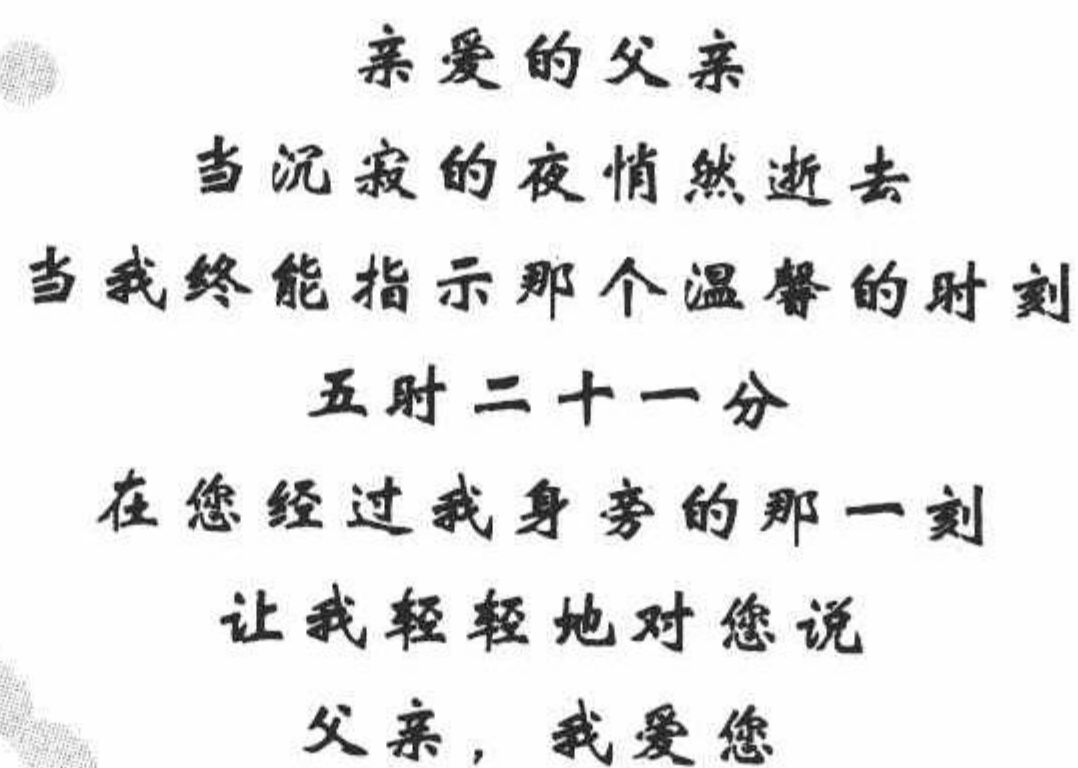 亲爱的父亲
当沉寂的夜悄然逝去
当我终能指示那个温馨的时刻
五时二十一分
在您经过我身旁的那一刻
让我轻轻地对您说
父亲，我爱您